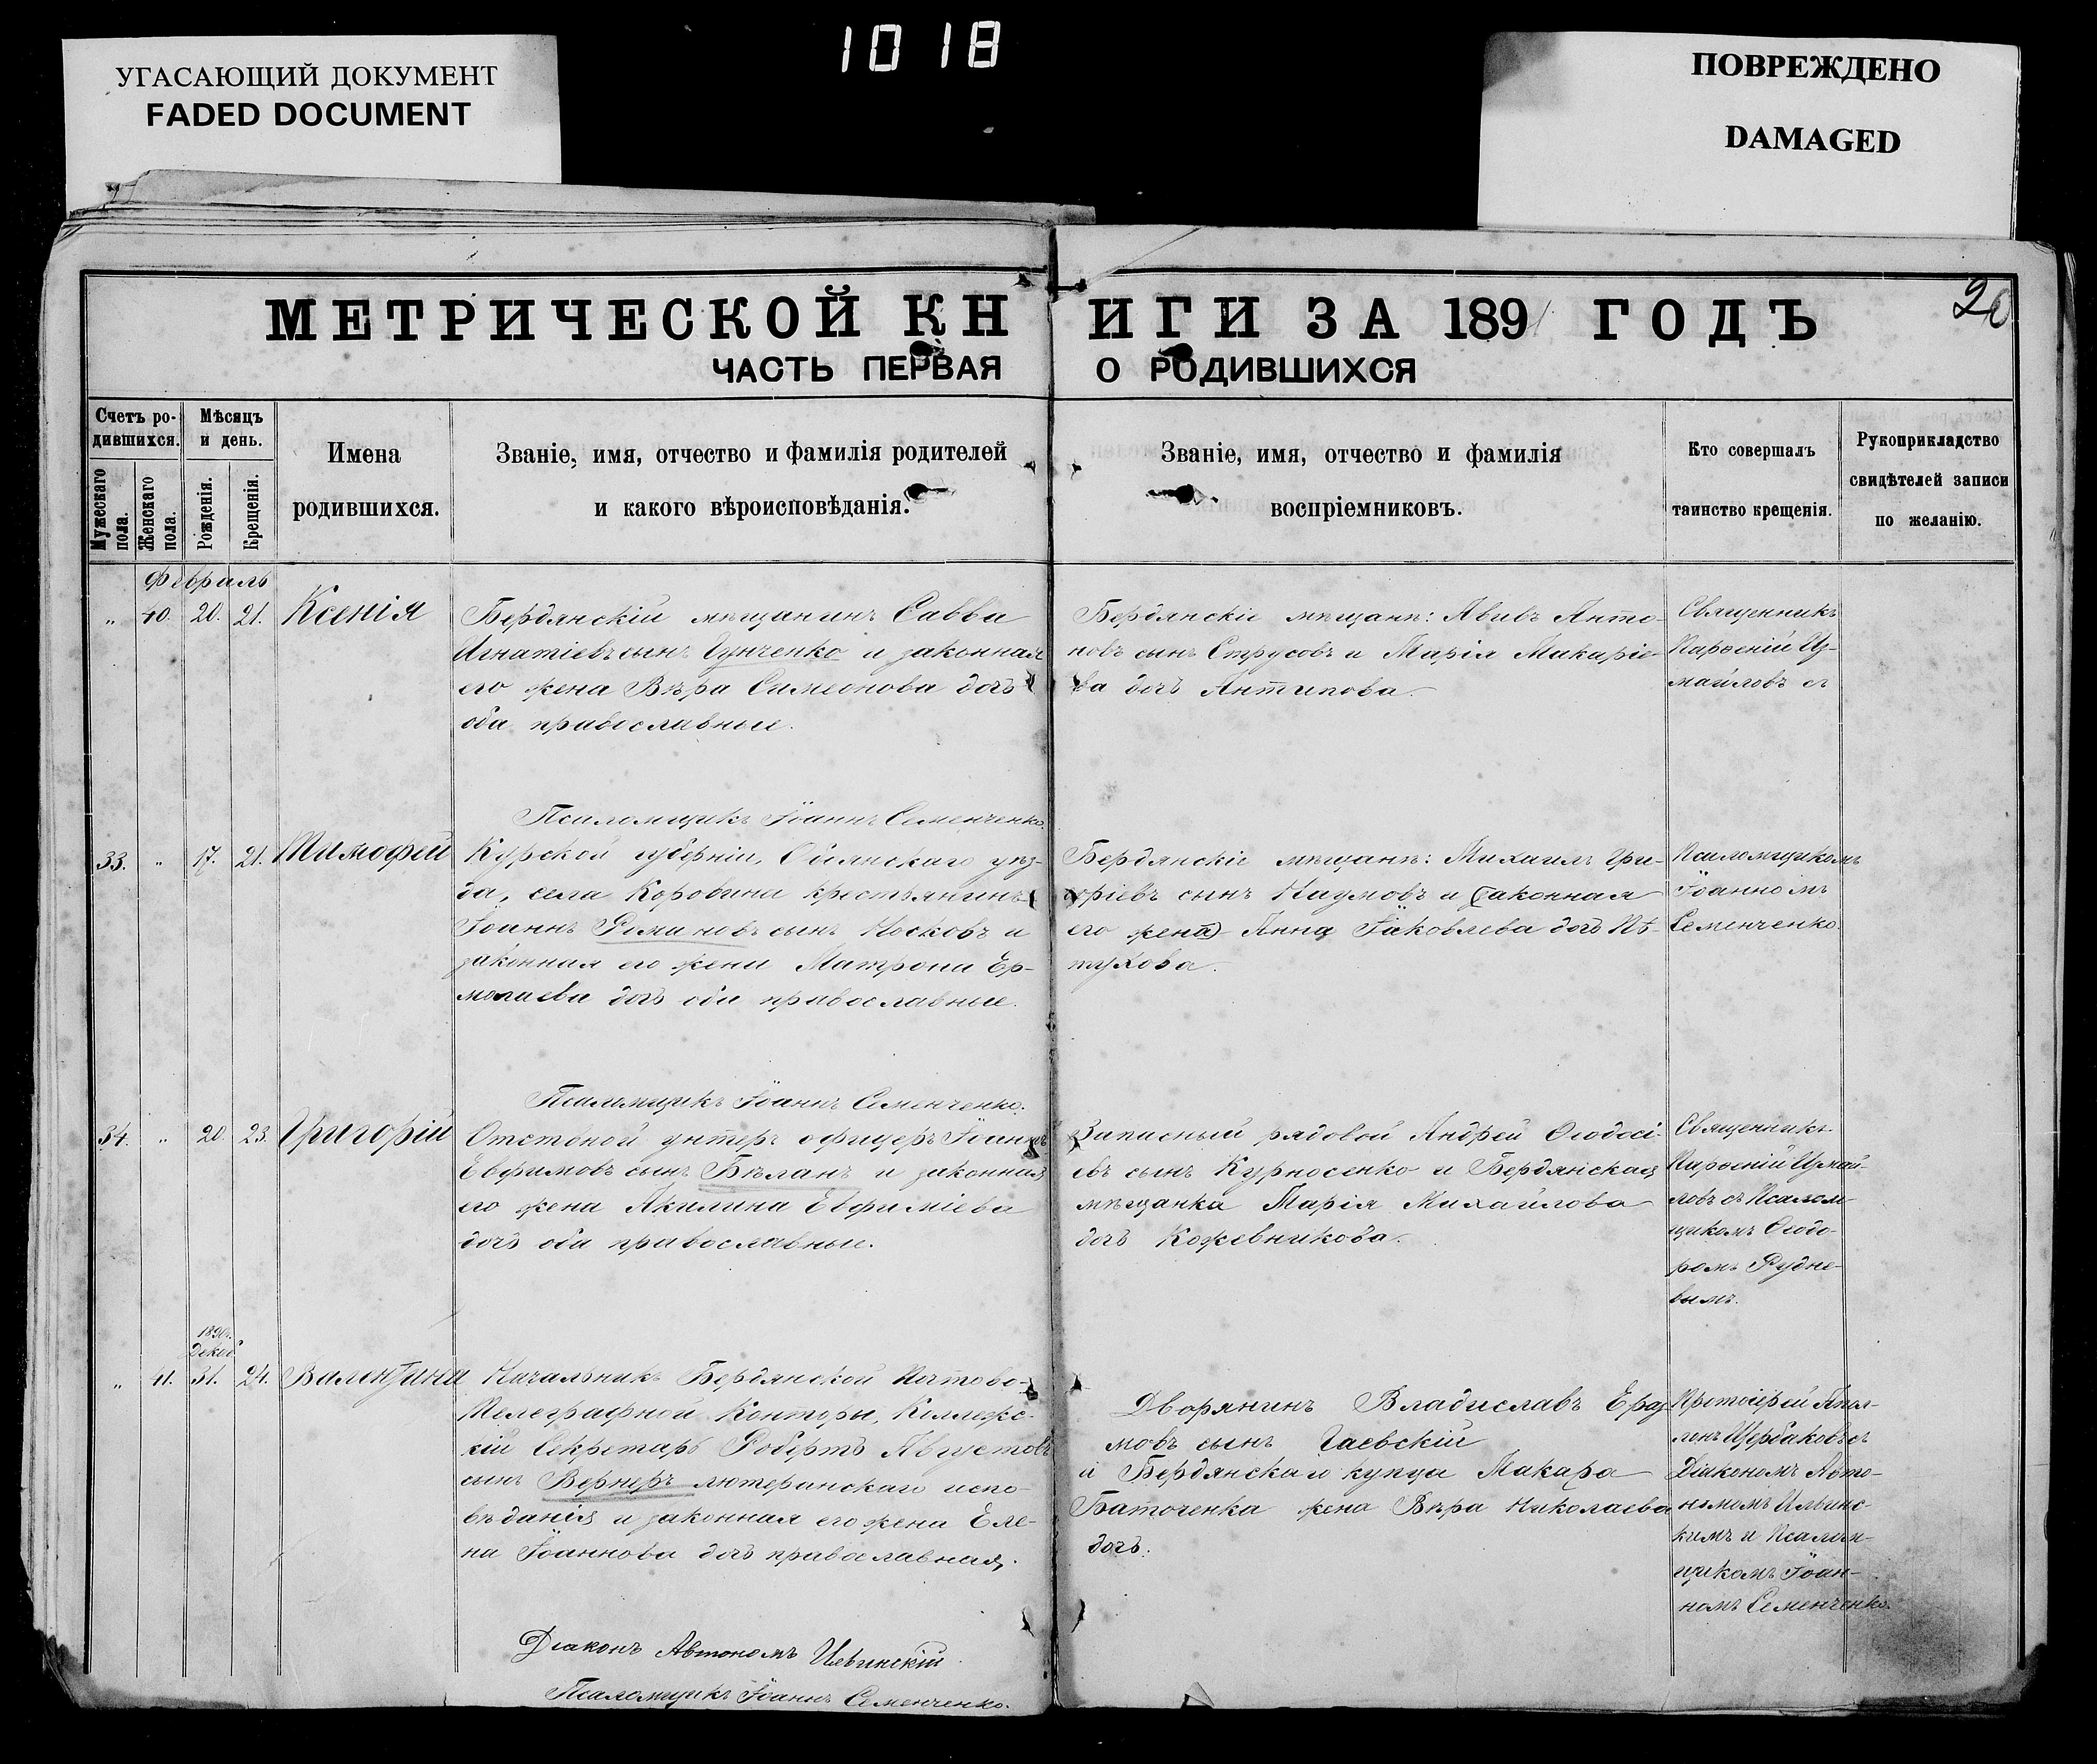 1018
УГАСАЮЩИЙ ДОКУМЕНТ
FADED DOCUMENT
ПОВРЕЖДЕНО
DAMAGED
26
МЕТРИЧЕСКОЙ КНИГИ ЗА 1891 ГОДЪ
ЧАСТЬ ПЕРВАЯ О РОДИВШИХСЯ
Счетъ ро-
дившихся.
Мужескаго пола.
Женскаго пола.
Мѣсяцъ
и день.
Рожденія.
Крещенія.
Имена
родившихся.
Званіе, имя, отчество и фамилія родителей
и какого вѣроисповѣданія.
Званіе, имя, отчество и фамилія
воспріемниковъ.
Кто совершалъ
таинство крещенія.
Рукоприкладство
свидѣтелей записи
по желанію.
Февраль
" 40. 20. 21. Ксенія
Бердянскій мѣщанинъ Савва
Игнатіевъ сынъ Гунченко и законная
его жена Вѣра Симеонова дочь
оба православные.
Бердянскіе мѣщане: Авивъ Анто-
новъ сынъ Струсовъ и Марія Макаріе-
ва дочь Антипова.
Священникъ
Парѳеній Из-
майловъ съ
Псаломщикъ Іоаннъ Семенченко.
33. " 17. 21. Тимофей
Курской губерніи, Обоянскаго уѣз-
да, села Коровина крестьянинъ
Іоаннъ Романовъ сынъ Носковъ и
законная его жена Матрона Ер-
молаева дочь оба православные.
Бердянскіе мѣщане: Михаилъ Гри-
горіевъ сынъ Наумовъ и (законная
его жена) Анна Іаковлева дочь Пѣ-
тухова.
Псаломщикомъ
Іоанномъ
Семенченко.
Псаломщикъ Іоаннъ Семенченко.
34. " 20. 23. Григорій
Отставной унтеръ офицеръ Іоаннъ
Евфимовъ сынъ Бѣланъ и законная
его жена Акилина Евфиміева
дочь оба православные.
Запасный рядовой Андрей Ѳеодосі-
евъ сынъ Курносенко и Бердянская
мѣщанка Марія Михайлова
дочь Кожевникова.
Священникъ
Парѳеній Измай-
ловъ съ Псалом-
щикомъ Ѳеодо-
ромъ Рудне-
вымъ.
1890г.
Декаб.
" 41. 31. 24. Валентина
Начальникъ Бердянской Почтово-
Телеграфной Конторы, Коллежс-
кій Секретарь Робертъ Августовъ
сынъ Вернеръ лютеранскаго испо-
вѣданія и законная его жена Еле-
на Іоаннова дочь православная.
Дворянинъ Владиславъ Ераз-
мовъ сынъ Гаевскій
и Бердянскаго купца Макара
Баточенка жена Вѣра Николаева
дочь.
Протоіерей
Щербаковъ съ
Діакономъ Авто-
номомъ Ильинс-
кимъ и Псалом-
щикомъ Іоан-
номъ Семенченко.
Діаконъ Автономъ Ильинскій
Псаломщикъ Іоаннъ Семенченко.